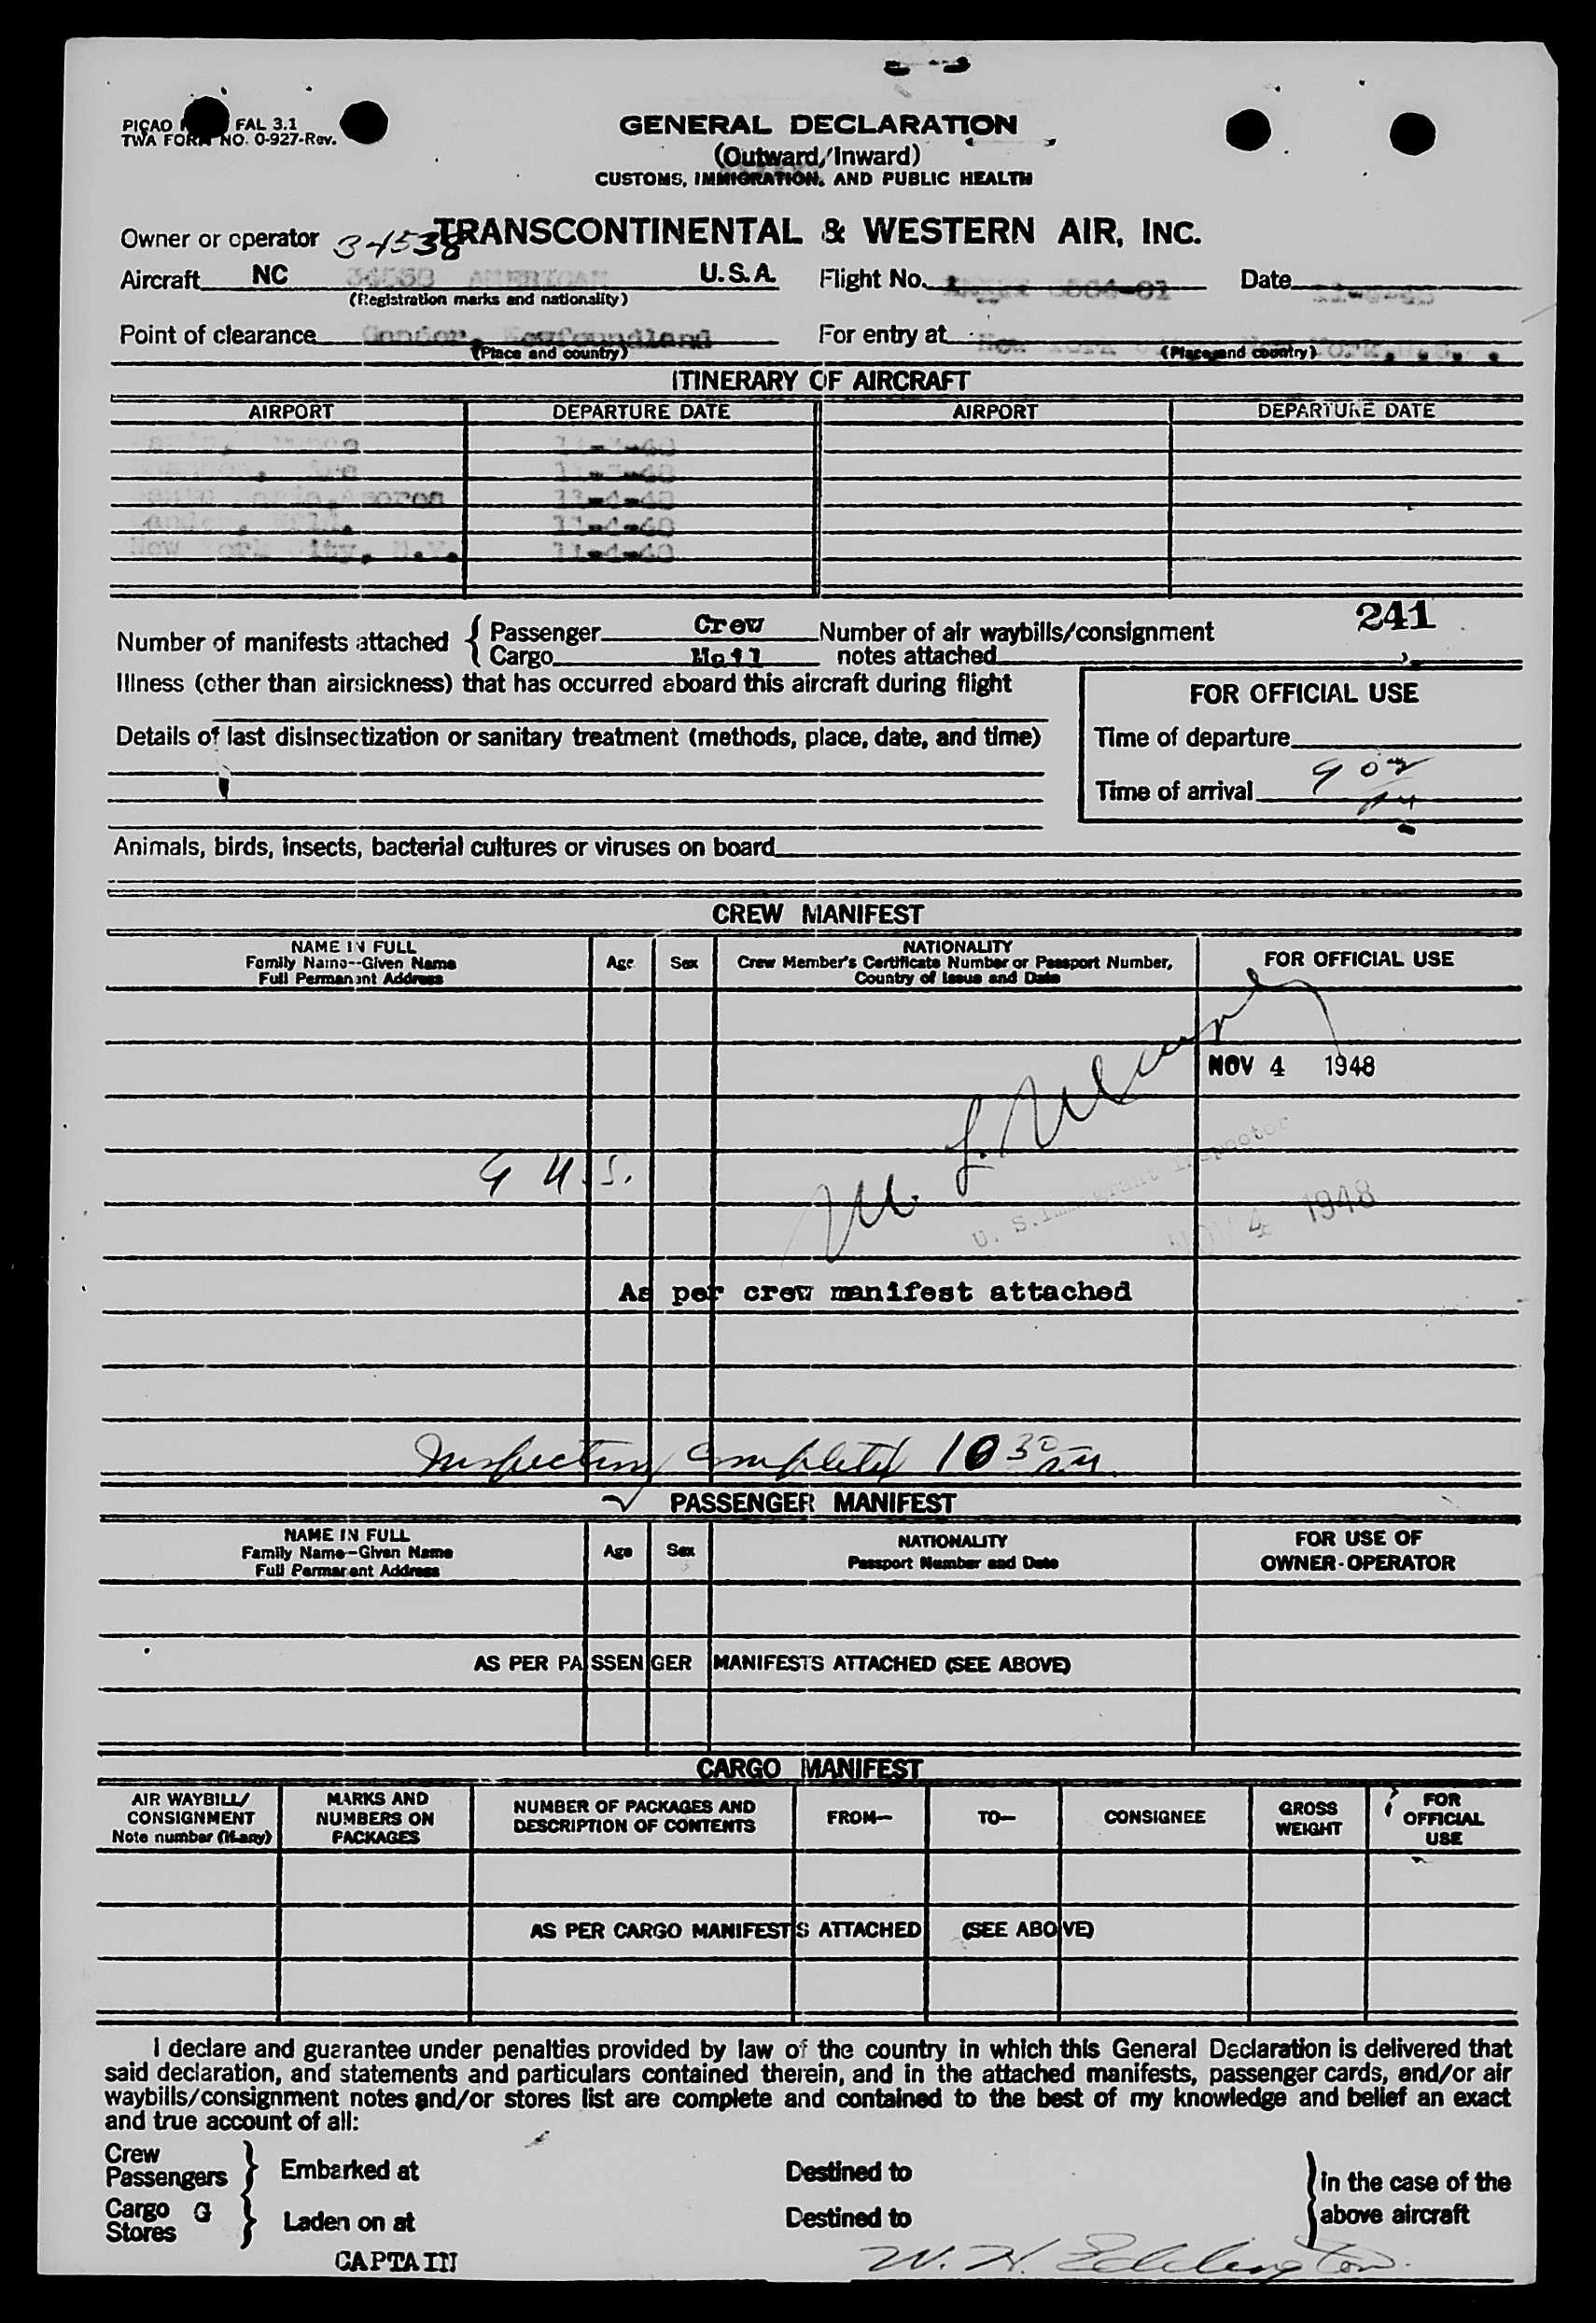 PICAO FAL 3.1
TWA FORM NO. 0-927-Rev.
GENERAL DECLARATION
(Outward/Inward)
CUSTOMS, IMMIGRATION, AND PUBLIC HEALTH
Owner or operator 34538 TRANSCONTINENTAL & WESTERN AIR, INC.
Aircraft NC 34538 AMERICAN U.S.A. Flight No. Date
(Registration marks and nationality)
Point of clearance Gander, Newfoundland For entry at New York
(Place and country) (Place and country)
ITINERARY OF AIRCRAFT
AIRPORT DEPARTURE DATE AIRPORT DEPARTURE DATE
11-4-48
11-4-48
New York City, N.Y. 11-4-48
241
Number of manifests attached { Passenger Crew Number of air waybills/consignment
Cargo Mail notes attached
Illness (other than airsickness) that has occurred aboard this aircraft during flight
FOR OFFICIAL USE
Details of last disinsectization or sanitary treatment (methods, place, date, and time)
Time of departure
Time of arrival
Animals, birds, insects, bacterial cultures or viruses on board
CREW MANIFEST
NAME IN FULL
Family Name--Given Name
Full Permanent Address
Age Sex
NATIONALITY
Crew Member's Certificate Number or Passport Number,
Country of Issue and Date
FOR OFFICIAL USE
NOV 4 1948
9 U.S.
U. S. Immigrant Inspector
NOV 4 1948
As per crew manifest attached
Inspection completed 10 30
PASSENGER MANIFEST
NAME IN FULL
Family Name--Given Name
Full Permanent Address
Age Sex
NATIONALITY
Passport Number and Date
FOR USE OF
OWNER-OPERATOR
AS PER PASSENGER MANIFESTS ATTACHED (SEE ABOVE)
CARGO MANIFEST
AIR WAYBILL/
CONSIGNMENT
Note number (if any)
MARKS AND
NUMBERS ON
PACKAGES
NUMBER OF PACKAGES AND
DESCRIPTION OF CONTENTS
FROM— TO— CONSIGNEE
GROSS
WEIGHT
FOR
OFFICIAL
USE
AS PER CARGO MANIFESTS ATTACHED (SEE ABOVE)
I declare and guarantee under penalties provided by law of the country in which this General Declaration is delivered that
said declaration, and statements and particulars contained therein, and in the attached manifests, passenger cards, and/or air
waybills/consignment notes and/or stores list are complete and contained to the best of my knowledge and belief an exact
and true account of all:
Crew
Passengers } Embarked at Destined to
Cargo G
Stores } Laden on at Destined to
} in the case of the
above aircraft
CAPTAIN W. H. Eddington